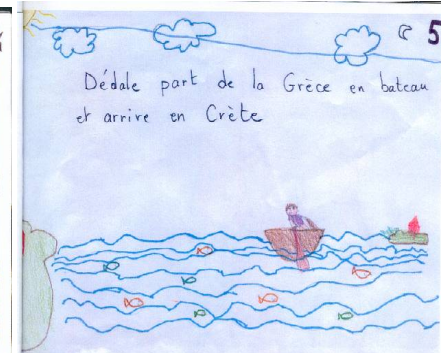 5
Dédale part de la Grèce en bateau
et arrive en Crète